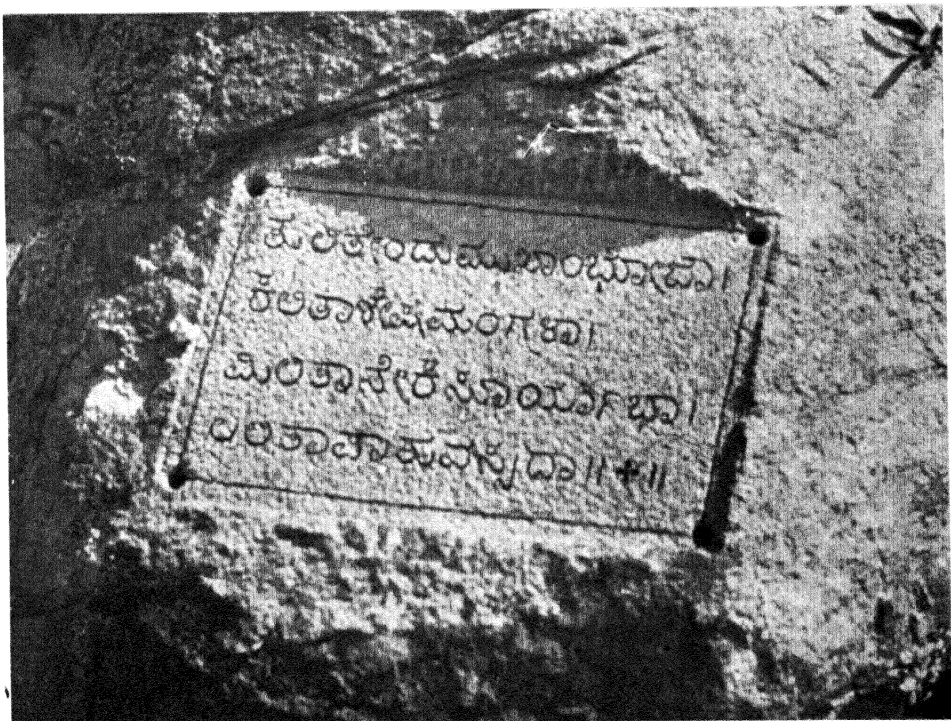 ತುಲಿತೇಂದುಮುಖಾಂಭೋಜಾ।
ಕಲಿತಾಶೇಷಮಂಗಳಾ।
ಮಿಲಿತಾನೇಕಸೂರ್ಯಾಭಾ।
ಲಲಿತಾಪಾತುವಸ್ಸದಾ॥+॥